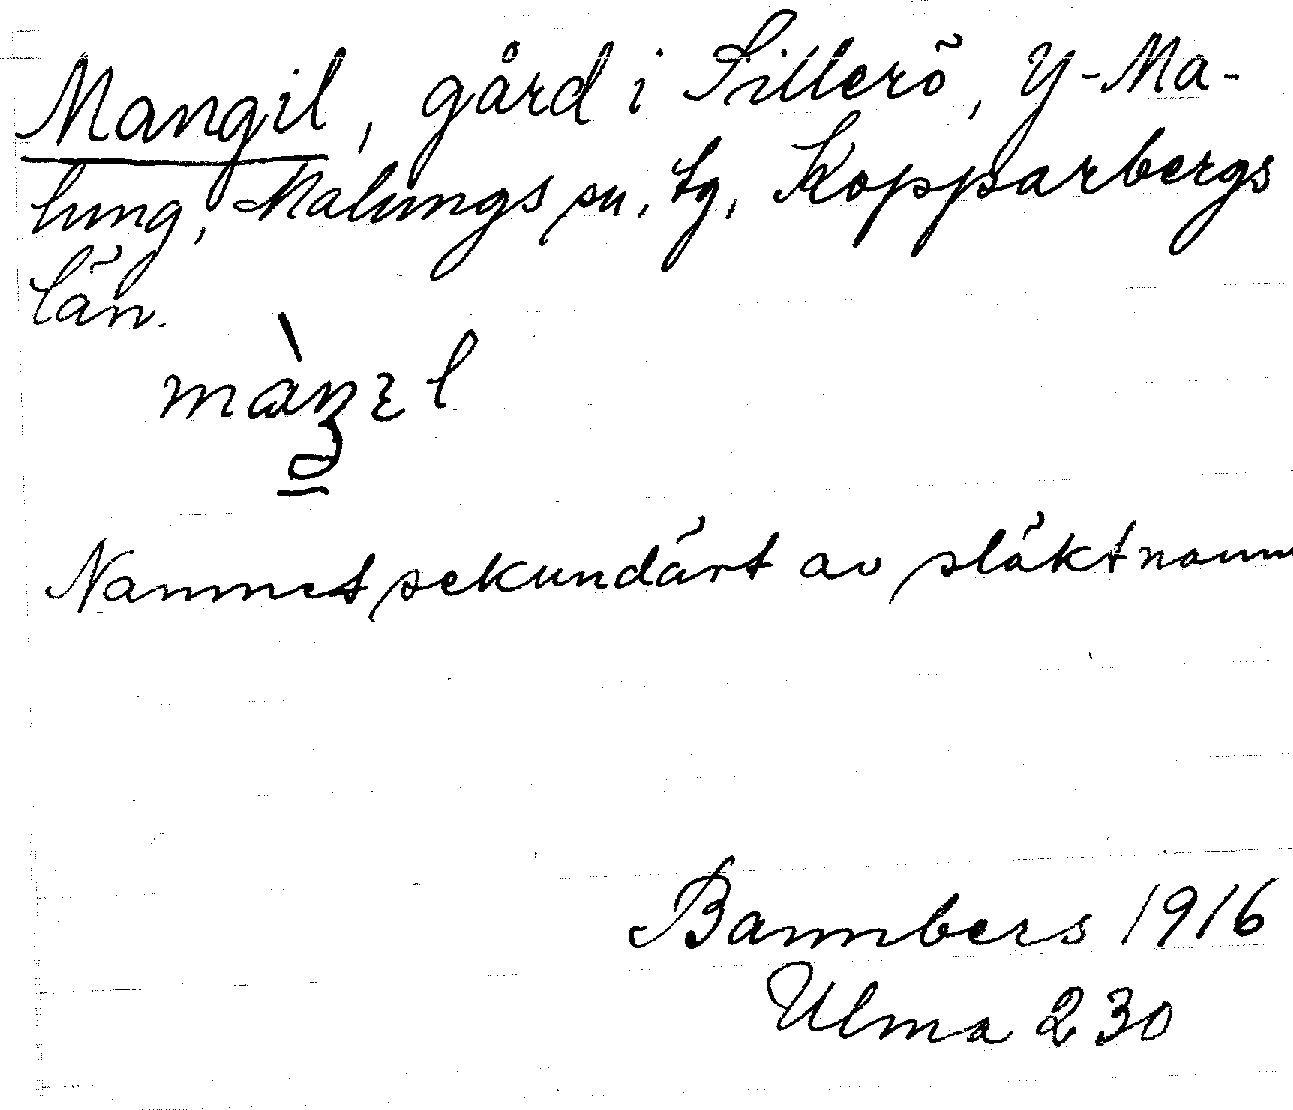 Mangil, gård i Sillerö, Y-Ma-
lung, Malungs sn, tg, Kopparbergs
län.
Namnet sekundärt av släktnamn
Bannbers 1916
Ulma 230